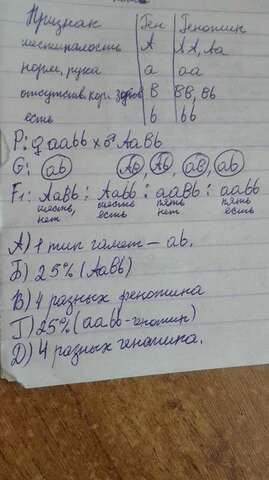 Признак Ген Генотип
шестипалость A AA, Aa
норм. рука a aa
отсутств. кор. зубов B BB, Bb
есть b bb
P: ♀ aabb x ♂ AaBb
G: ab AB, Ab, aB, ab
F₁: AaBb : Aabb : aaBb : aabb
шесть, шесть пять пять
нет есть нет есть
А) 1 тип гамет – ab.
Б) 25% (AaBb)
В) 4 разных фенотипа
Г) 25% (aabb-генотип)
Д) 4 разных генотипа.